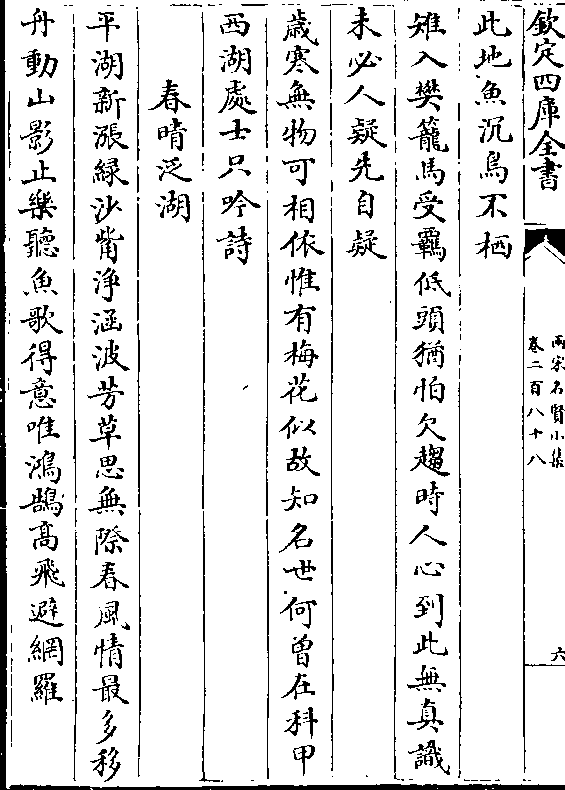 欽定四庫全書
兩宋名賢小集
卷二百八十八
六
此地魚沉鳥不栖
雉入樊籠馬受羈低頭猶怕欠趨時人心到此無真識
未必人疑先自疑
歲寒無物可相依惟有梅花似故知名世何曾在科甲
西湖處士只吟詩
春晴泛湖
平湖新漲緑沙觜淨涵波芳草思無際春風情最多移
舟動山影止樂聽魚歌得意唯鴻鵠髙飛避網羅